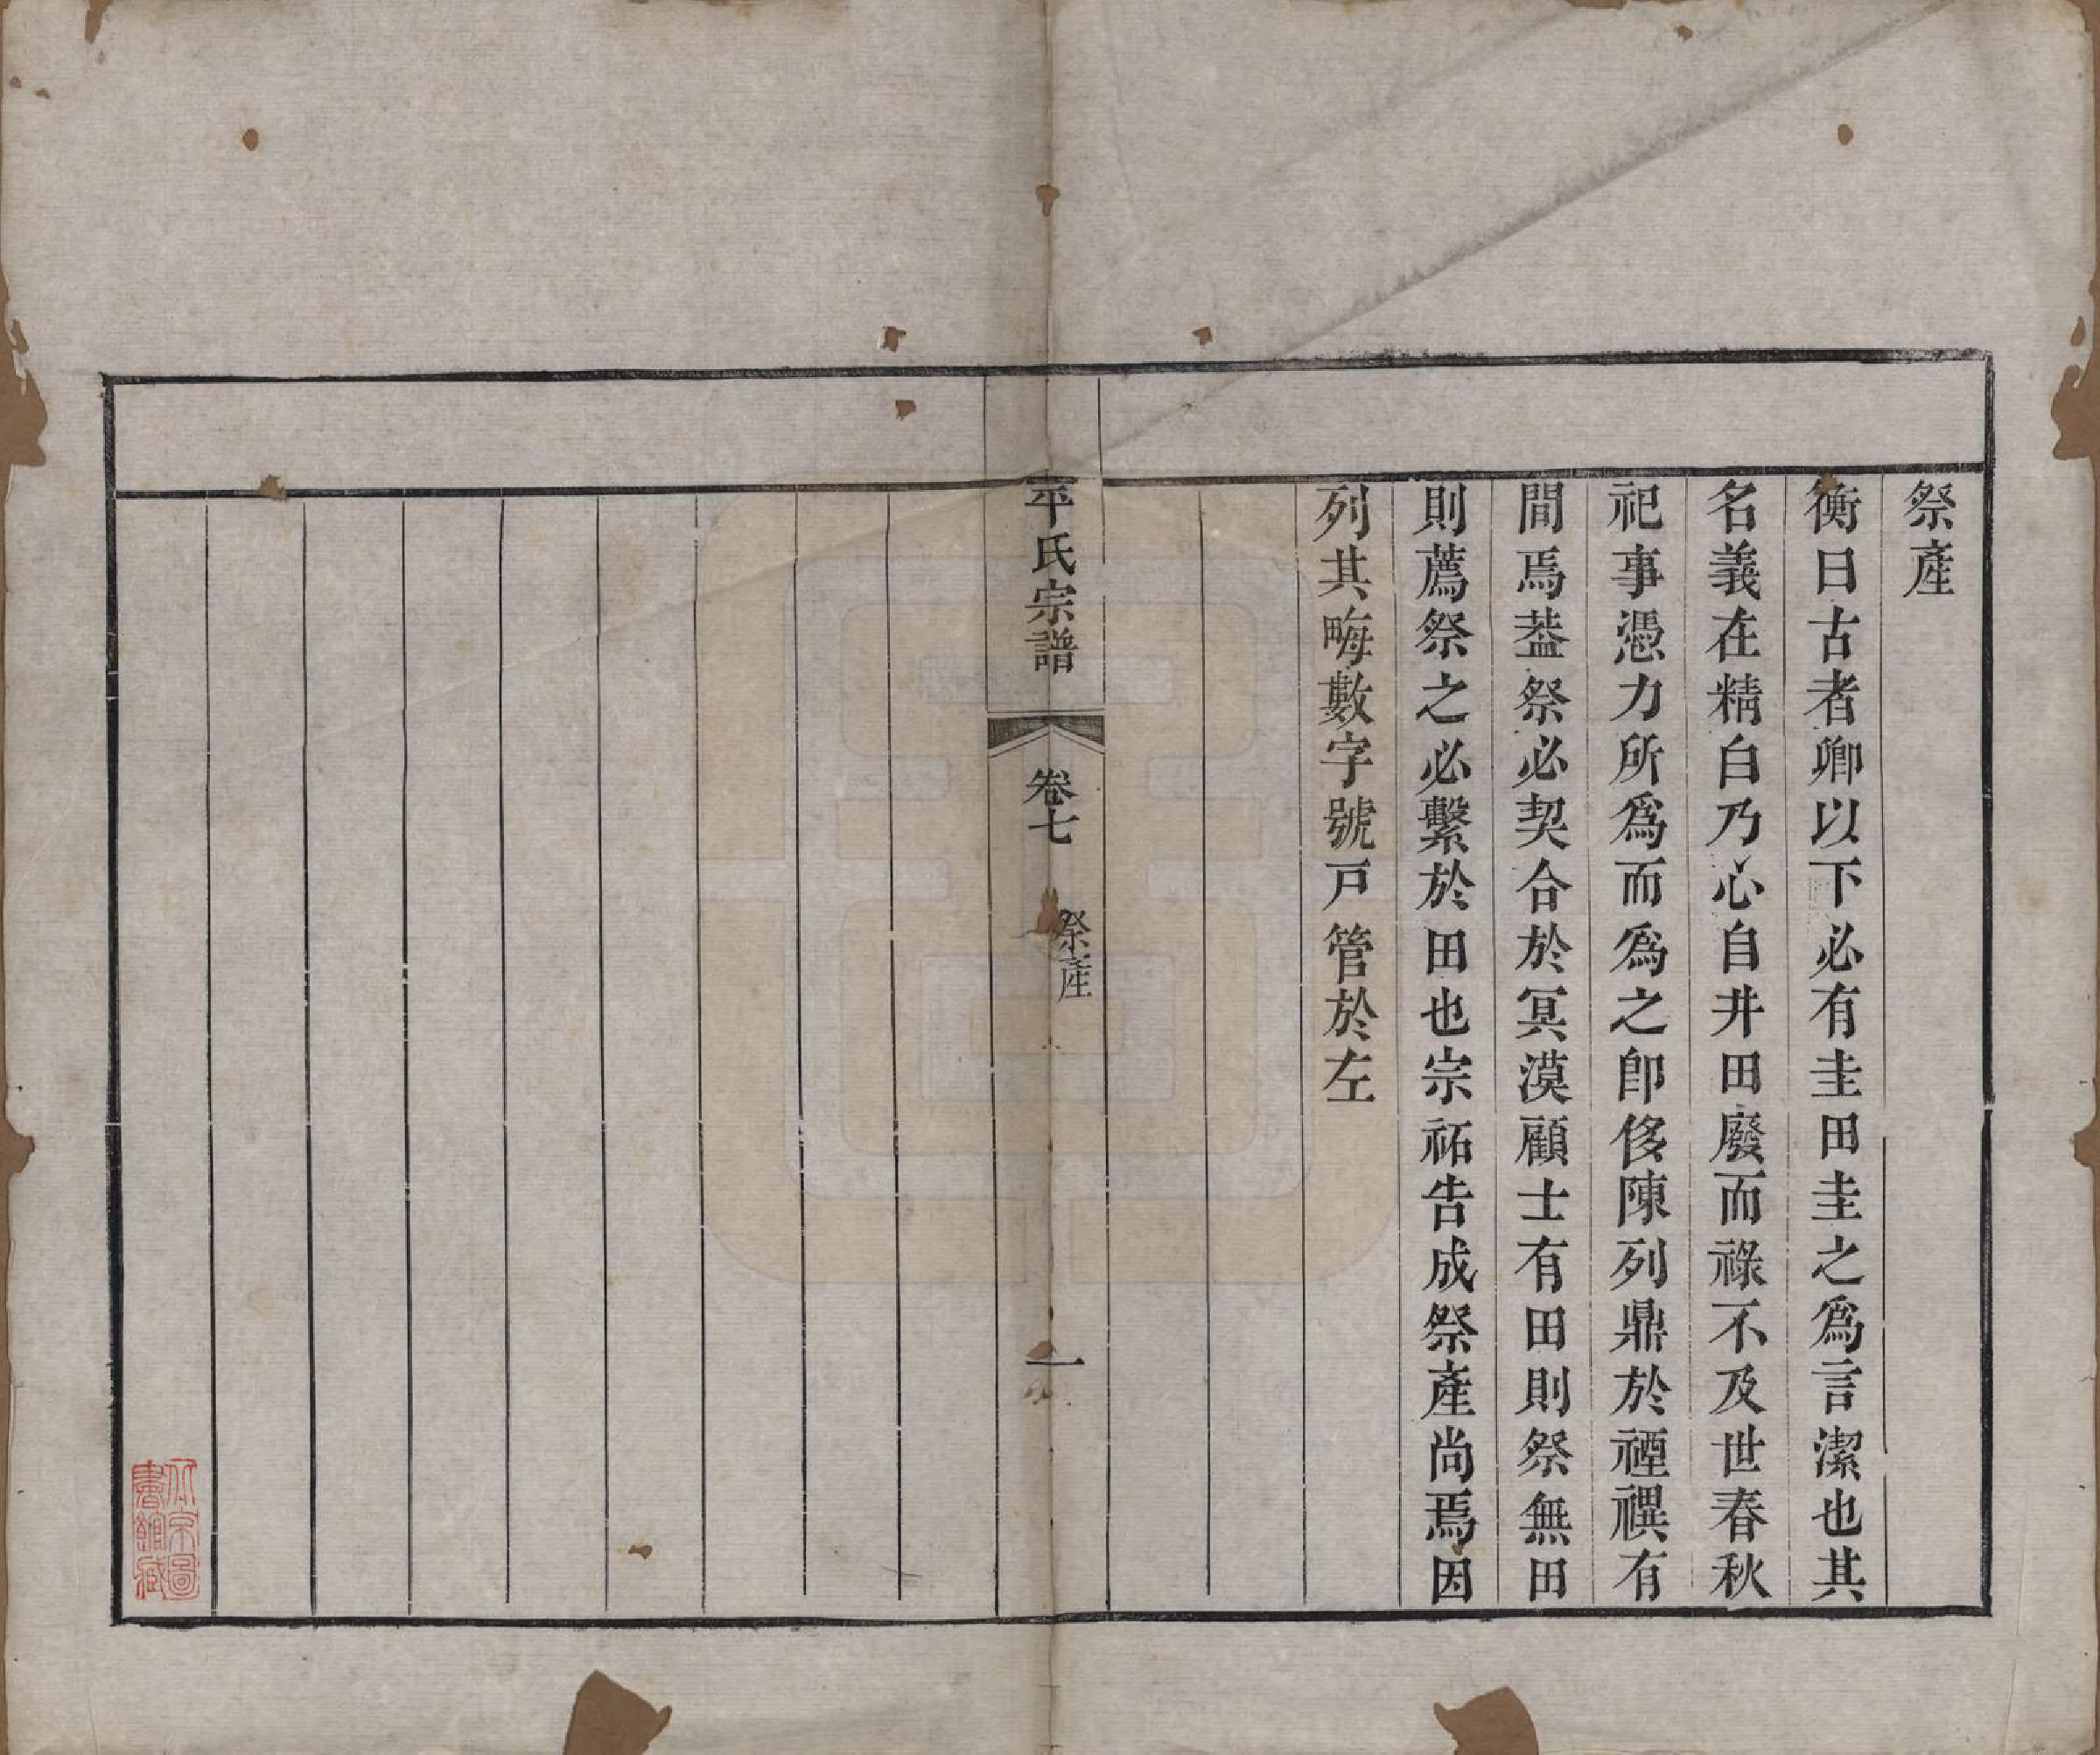 祭產
衡曰古者卿以下必有圭田圭之爲言潔也其
名義在精白乃心自井田廢而祿不及世春秋
祀事憑力所爲而爲之卽侈陳列鼎於禋禩有
間焉葢祭必契合於冥漠顧士有田則祭無田
則薦祭之必繫於田也宗祏告成祭產尚焉因
列其畮數字號戸管於左
平氏宗譜
卷七
祭產
一
北京圖
書館藏